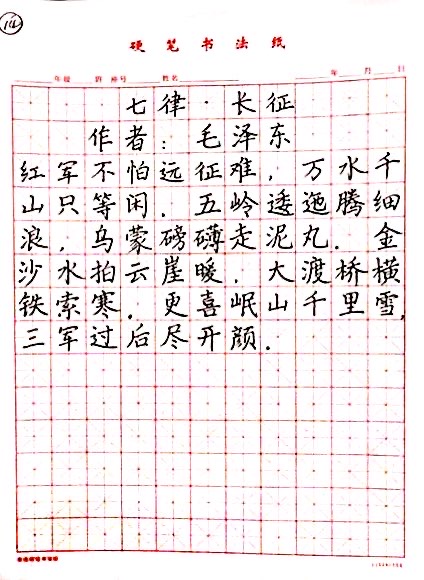 14
硬笔书法纸
年级 班 座号 姓名 年 月 日
七律·长征
作者:毛泽东
红军不怕远征难,万水千
山只等闲.五岭逶迤腾细
浪,乌蒙磅礴走泥丸.金
沙水拍云崖暖.大渡桥横
铁索寒.更喜岷山千里雪,
三军过后尽开颜.